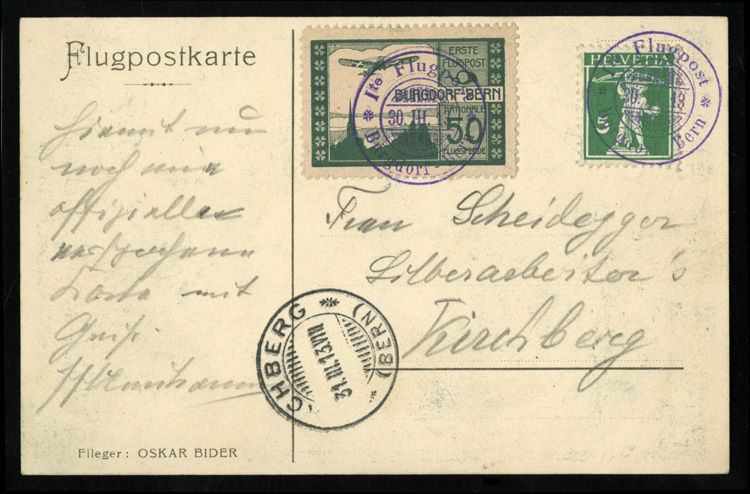 Flugpostkarte
ERSTE
FLUGPOST
BURGDORF-BERN
NATIONALE
50
FLUGSPENDE
Ite Flugpost
30.III.
Burgdorf
HELVETIA
5
Flugpost
30.
13
Bern
Hiermit nun
noch eine
offizielle
versprochene
Karte mit
Frau Scheidegger
Silberarbeiter's
Kirchberg
CHBERG
31.III.13.VIII
(BERN)
Flieger: OSKAR BIDER